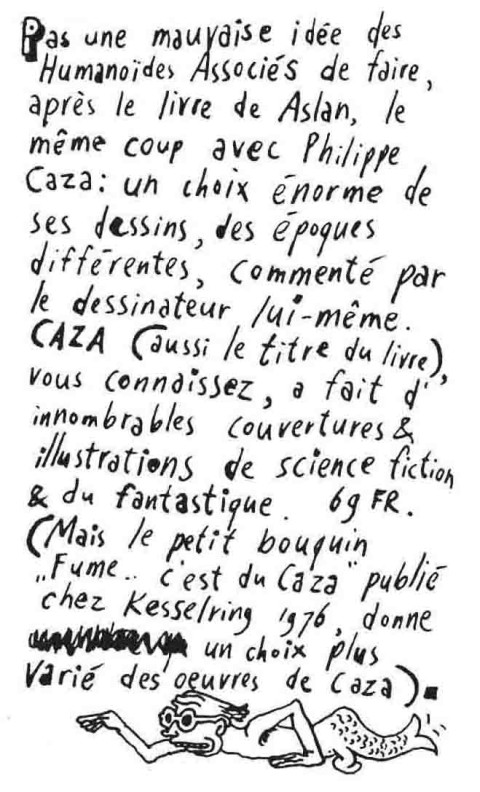 Pas une mauvaise idée des
Humanoïdes Associés de faire,
après le livre de Aslan, le
même coup avec Philippe
Caza: un choix énorme de
ses dessins, des époques
différentes, commenté par
le dessinateur lui-même.
CAZA (aussi le titre du livre),
vous connaissez, a fait d'
innombrables couvertures &
illustrations de science fiction
& du fantastique. 69 FR.
(Mais le petit bouquin
„Fume.. c'est du Caza" publié
chez Kesselring 1976, donne
un choix plus
varié des oeuvres de Caza).